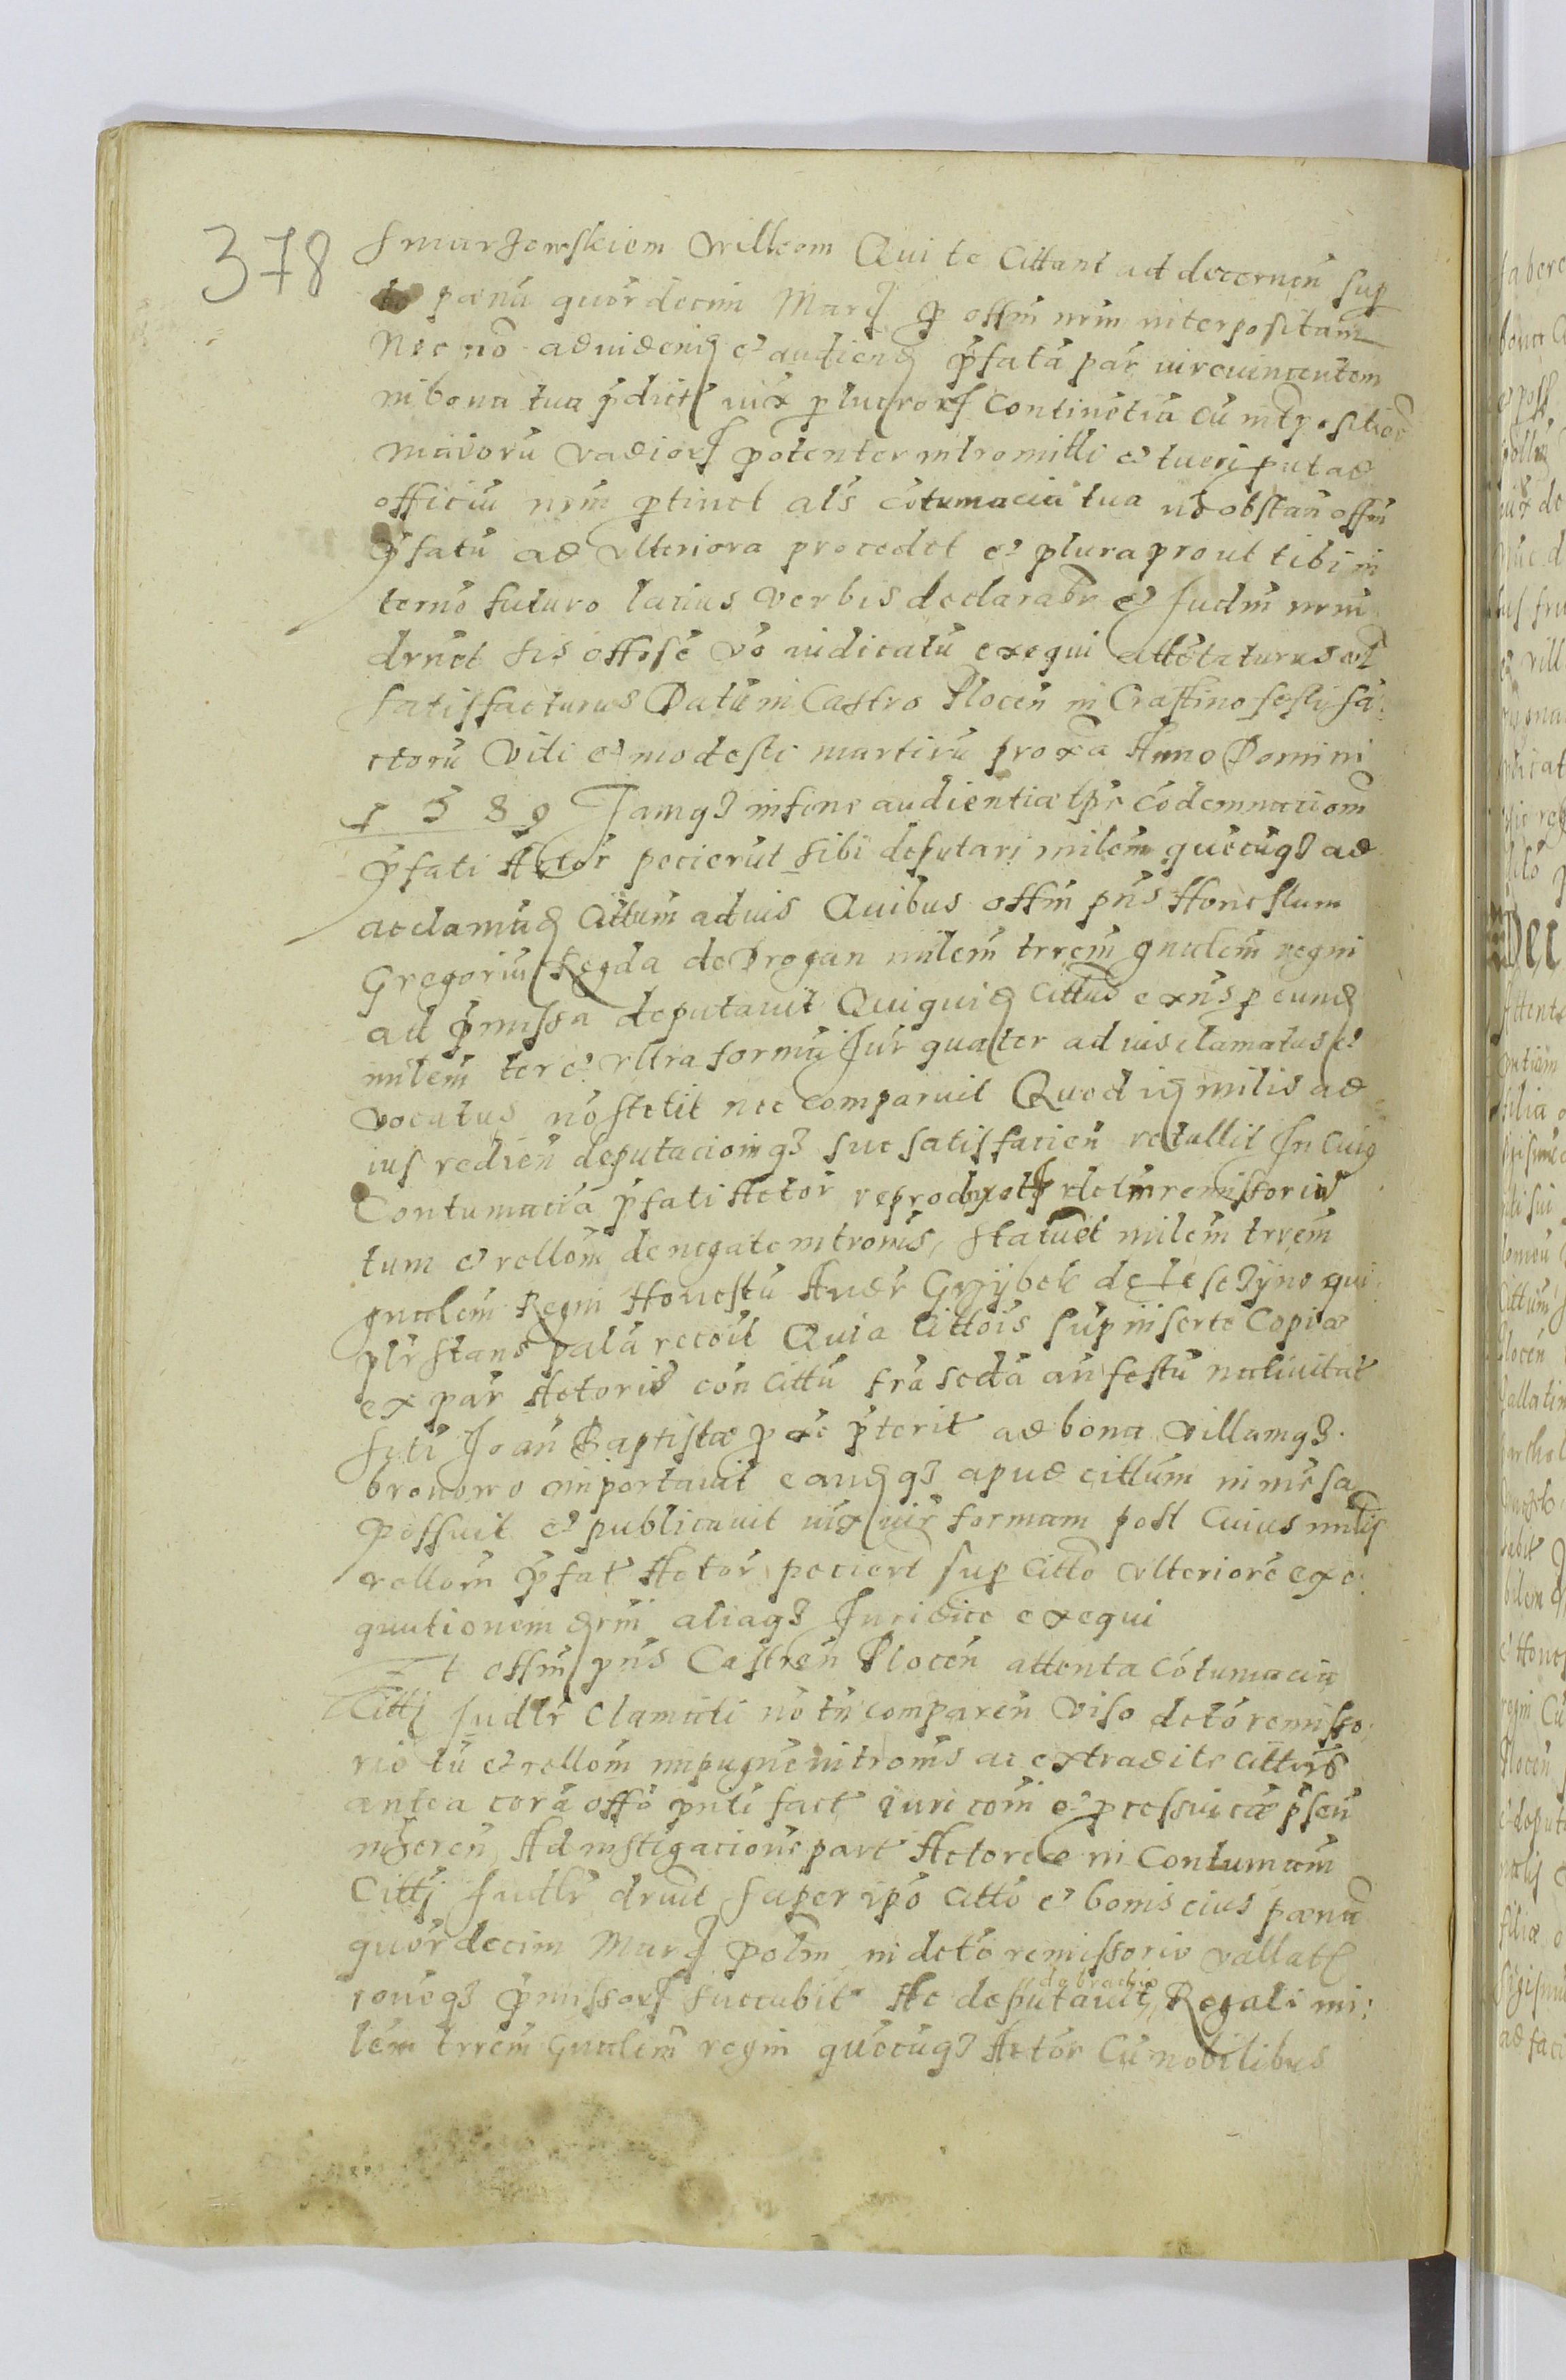 378
Smarzowskiem villeom Qui te Cittant ad decernen sup
te pœnā quordecim Marc p offm nrm interpositam
Nec nō advidend et audiend pfata par iurevincentem
in bona tua pdict iux plucrorq Continētia cū intpositiōe
maiorū vadiorq potenter intromitti et tueri putad
officiū nrm ptinet als cōtumacia tua nō obstan offm
pfatū ad vlteriora procedet et plura prout tibi in
termō futuro latius verbis declarabr et Judm nrm
drnet sis offose vō iudicatū exequi attētaturus et
satisfacturus Datū in Castro Plocen in Crastino festi sā
ctorū Viti et modesti martirū proxa Anno Domini
1589 Jamqz in fine audientiæ tpr cōdemnationū
pfati Actor pecierūt sibi deputari milem quēcūqz ad
acclamād Cittum ad ius Quibus offm pns Honestum
Gregoriū Regda de Progan milem trrem gnalem regni
ad pmissa deputavit Quiquid Cittus exns p eund
milem ter et vltra formā Jur quater ad ius clamatus et
vocatus nō stetit nec comparuit Quod id milis ad
ius redien deputacioniqz sue satisfacien retullit In Cuiq
Contumaciā pfati Actor reproducto dcto remissorio
tum et rellom denegate intromis, statuēt milem trrem
gnalem Regni Honestū Andr Grzÿbek de Leseczÿno qui
plr stans palā recoit Quia Cittois sup inserte Copiæ
ex par Actoris con Cittū fra sedā an festū nativitat
scti Joan Baptistæ pxe pterit ad bona villamqz
bronowo importavit eandqz apud cittum in mēsa
possuit et publicavit iux iur formam post Cuius milis
rellom pfat Actor peciert sup Citto vlteriorē exe:
quutionem drni aliaqz Juridice exequi
Et offm pns Castren Plocen attenta Cōtumacia
Citti Judlr Clamati nō tn comparen Viso dcto remisso
rio tū et rellom impugnē intromis ac extradite Cittois
antea corā offo pnti fact iuri com et pcessui cæ psen
inheren, Ad instigacione part Actoreæ in Contumaim
Citti Judlr drnit super ipo Citto et bonis eius pœnā
quordecim Marc polm in dcto remissorio vallatq
roneqz pmissorq succubit Ac deputavit Regali mi:
de brachio
lem trrem gnalem regni quēcūqz Actor Cū nobilibus